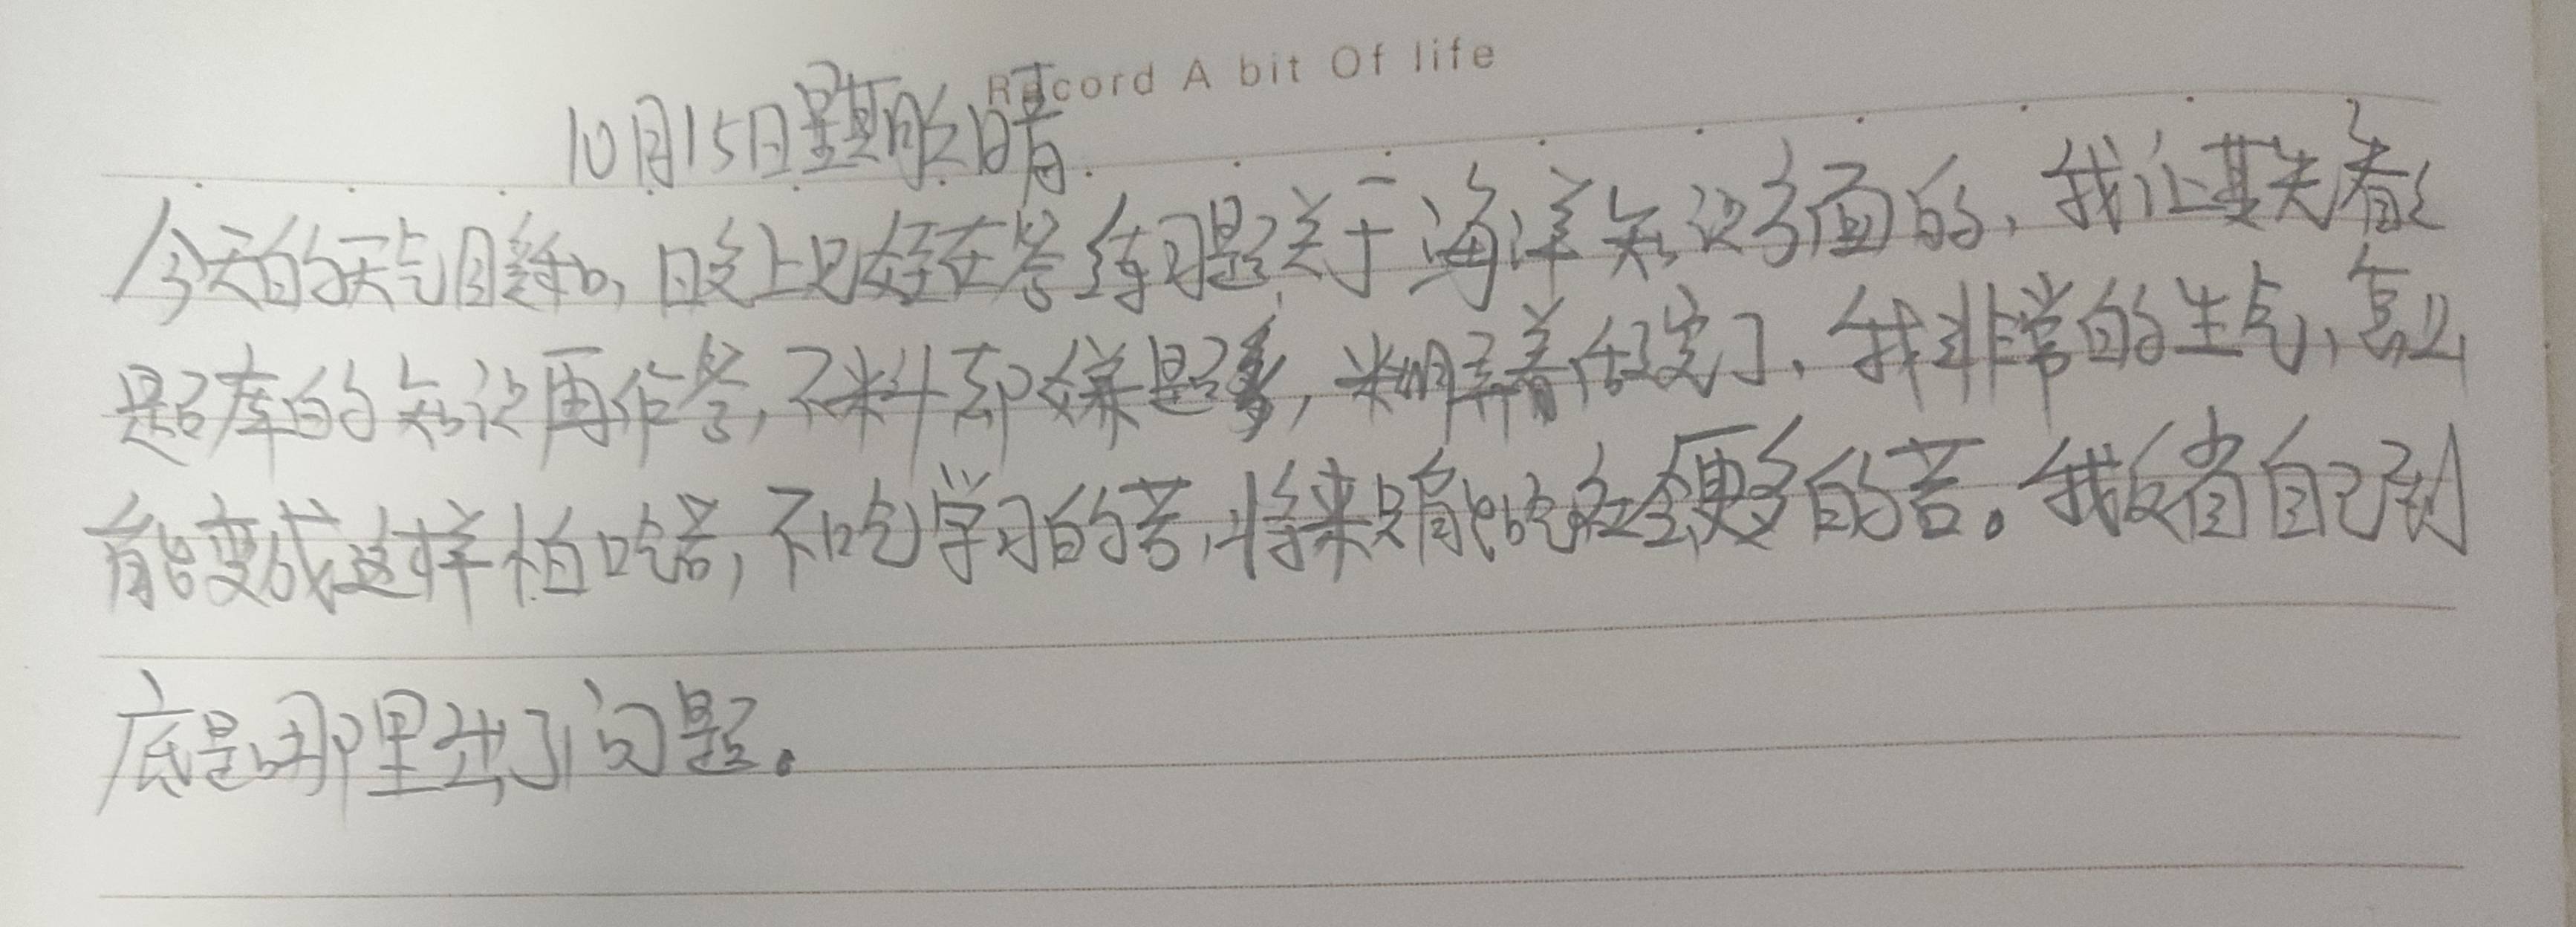 Record A bit Of life
10月15日星期 晴
今天的天气 ,晚上 在答练习题关于海洋知识方面的,我让其先看
题库的知识再作答,不料却嫌题多, 着做完了,我非常的生气,怎么
能变成这样怕吃苦,不吃学习的苦,将来只能吃社会更多的苦。我反省自己到
底是哪里出了问题。